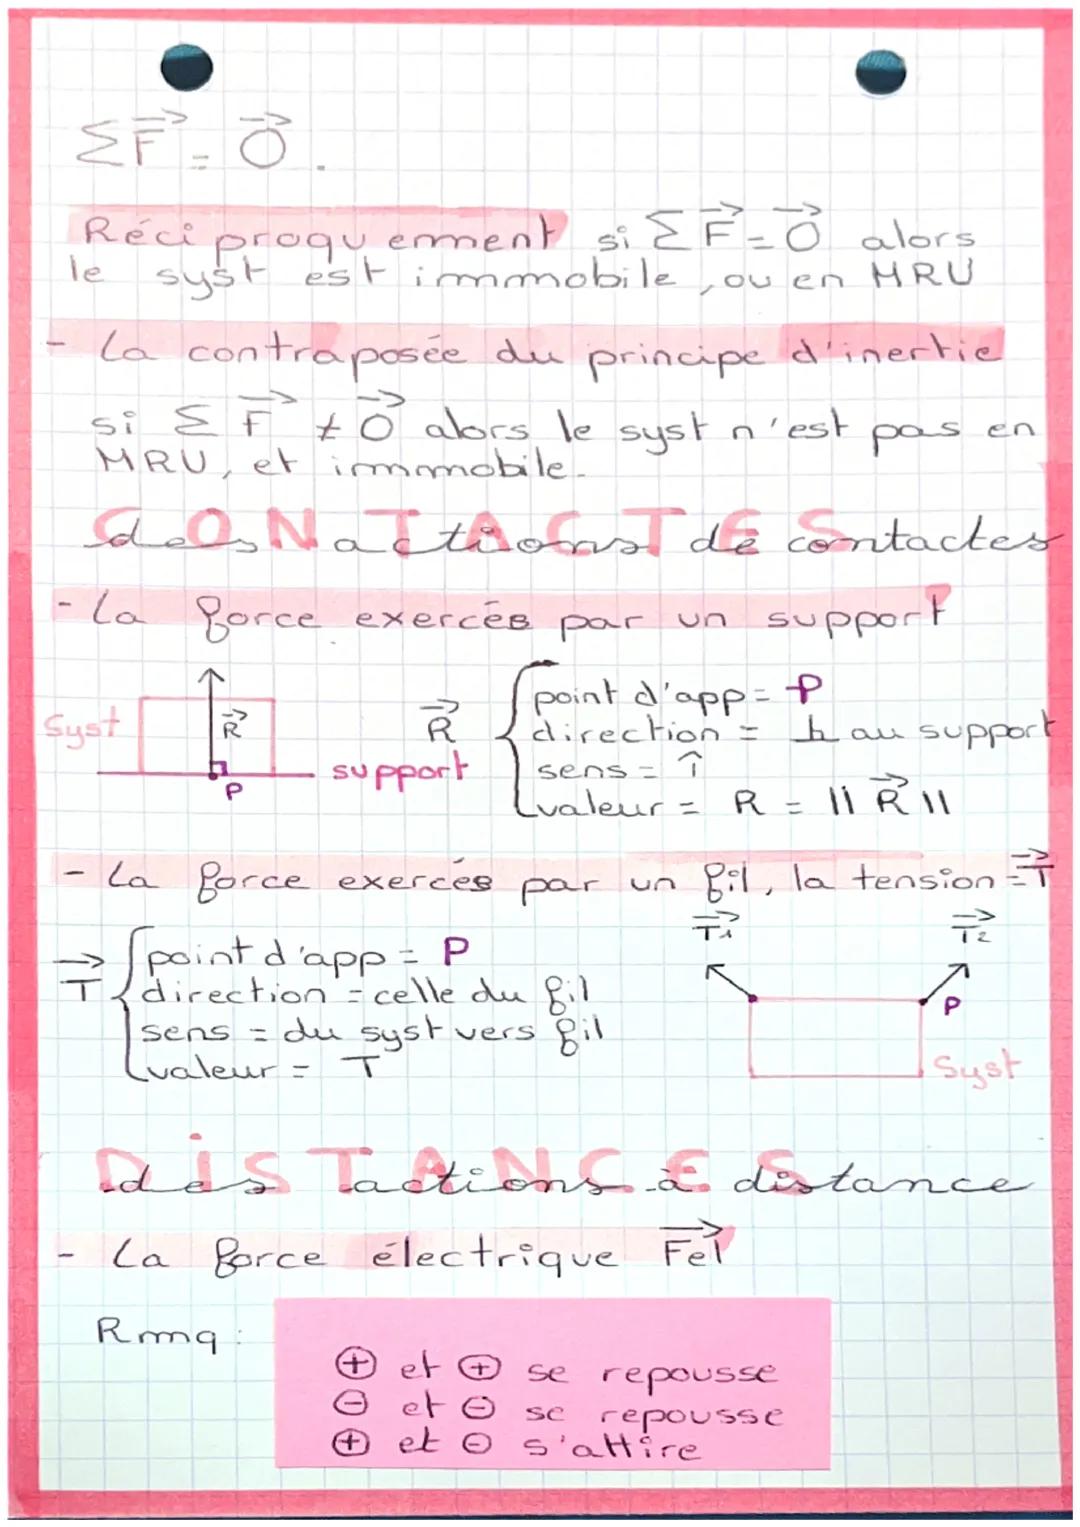 ΣF⃗ = O⃗.
Réciproquement si ΣF⃗ = O⃗ alors
le syst est immobile, ou en MRU
- La contraposée du principe d'inertie
si ΣF⃗ ≠ O⃗ alors le syst n'est pas en
MRU, et immobile.
CONTACTES
des actions de contactes
- La force exercées par un support
Syst
R⃗
P
support
R⃗
point d'app = P
direction = ⊥ au support
sens = ↑
valeur = R = || R⃗ ||
- La force exercés par un fil, la tension = T⃗
T⃗
point d'app = P
direction = celle du fil
sens = du syst vers fil
valeur = T
T⃗1
T⃗2
P
Syst
DISTANCES
des actions à distance
- La force électrique F⃗el
Rmq :
⊕ et ⊕ se repousse
⊖ et ⊖ se repousse
⊕ et ⊖ s'attire